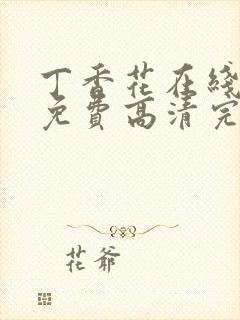 丁香花在綫
免費高清完
花爺